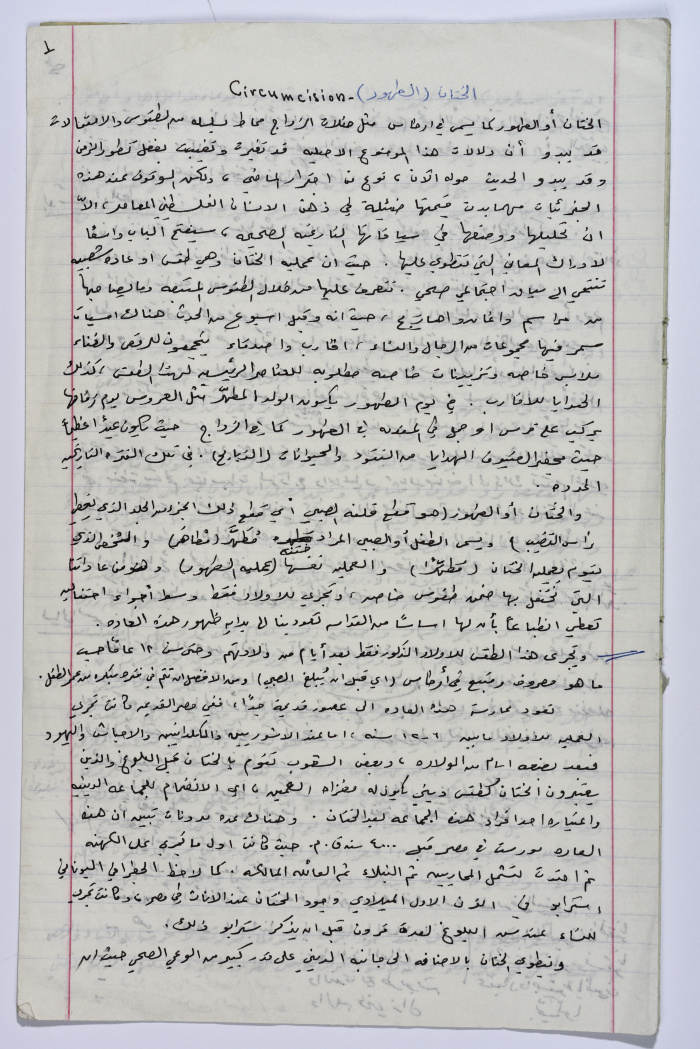 ١
الختان (الطهور) - Circumcision
الختان أو الطهور كما يسمى في ارطاس مثل حفلات الزواج محاط بسلسله من الطقوس والاحتفالات
قد يبدو أن دلالات هذا الموضوع الاصليه قد تغيرت وتضببت بفعل تطور الزمن
وقد يبدو الحديث حوله الآن، نوع من اجترار الماضي، ولكن الوقوف عند هذه
الجزئيات مهما بدت قيمتها ضئيلة في ذهن الانسان الفلسطيني المعاصر، الاّ
ان تحليلها ووضعها في سياقاتها التاريخيه الصحيحه، سيفتح الباب واسعا
لادراك المعاني التي تنطوي عليها. حيث ان عملية الختان وهي طقس او عادة شعبيه
تنتمي الى سياق اجتماعي صحي. نتعرف عليها من خلال الطقوس المتبعه وما يصاحبها
من مراسم واغاني واهازيج، حيث انه وقبل اسبوع من الحدث هناك امسيات
سمر فيها مجموعات من الرجال والنساء، اقارب واصدقاء يتجمعون للرقص والغناء
ملابس خاصه وتزيينات خاصه مطلوبه للعناصر الرئيسيه لهذا الطقس، كذلك
الهدايا للاقارب. في يوم الطهور يكون الولد المطهَّر مثل العروس يوم زفافها
يركب على فرس او جمل في المقدمه في الطهور كما في الزواج حيث يكون عيداً عظيماً
حيث يحضر الضيوف الهدايا من النقود والحيوانات (الذبايح). في تلك الفتره التاريخيه
المحدده.
والختان أو الطهور (هو قطع قلفة الصبي أي قطع ذلك الجزء من الجلد الذي يغطي
رأس القضيب) ويسمى الطفل أو الصبي المراد ختنه مُطهَّر (مْطاهر) والشخص الذي
يقوم بعملية الختان (مُطهِّراً) والعملية نفسها (بعملية الطهور) وهو من عاداتنا
التي نحتفل بها ضمن طقوس خاصه، وتجري للاولاد فقط وسط أجواء احتفاليه
تعطي انطباعاً بأن لها اساساً من القداسه تعود بنا الى بدايه ظهور هذه العاده.
ويجرى هذا الطقس للاولاد الذكور فقط بعد أيام من ولادتهم وحتى سن ١٢ عاماً حسب
ما هو معروف ومتبع في أرطاس (اي قبل ان يُبلغ الصبي) ومن الافضل ان تتم في فتره مبكره من عمر الطفل.
تعود ممارسة هذه العاده الى عصور قديمة جداً، ففي مصر القديمه كانت تجري
العمليه للاولاد ما بين ٦-١٢ سنه، اما عند الاشوريين والكلدانيين والاحباش واليهود
فبعد بضعه ايام من الولاده، وبعض الشعوب تقوم بالختان قبل البلوغ والذين
يعتبرون الختان كطقس ديني يكون له مغزاه المعين، اي الانضمام للجماعه الدينيه
واعتباره احد افراد هذه الجماعه بعد الختان. وهناك عده مدونات تبين ان هذه
العاده مورست في مصر قبل ٤٠٠٠ سنه ق.م. حيث كانت اول ما تجري على الكهنه
ثم امتدت لتشمل المحاربين ثم النبلاء ثم العائله المالكه. كما لاحظ الجغرافي اليوناني
استرابو في القرن الاول الميلادي وجود الختان عند الاناث في مصر، وكانت تجرى
للنساء عند سن البلوغ لعدة قرون قبل ان يذكر سترابو ذلك.
وينطوي الختان بالاضافه الى جانبه الديني على قدر كبير من الوعي الصحي حيث ان